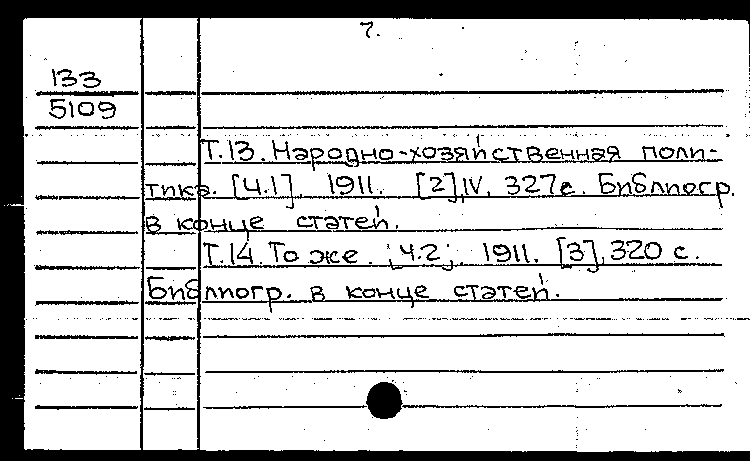 7.
133
5109
Т.13. Народно-хозяйственная поли-
тика. [Ч.1]. 1911. [2], IV, 327 с. Библиогр.
в конце статей.
Т.14. То же. [Ч.2]. 1911. [3], 320 с.
Библиогр. в конце статей.